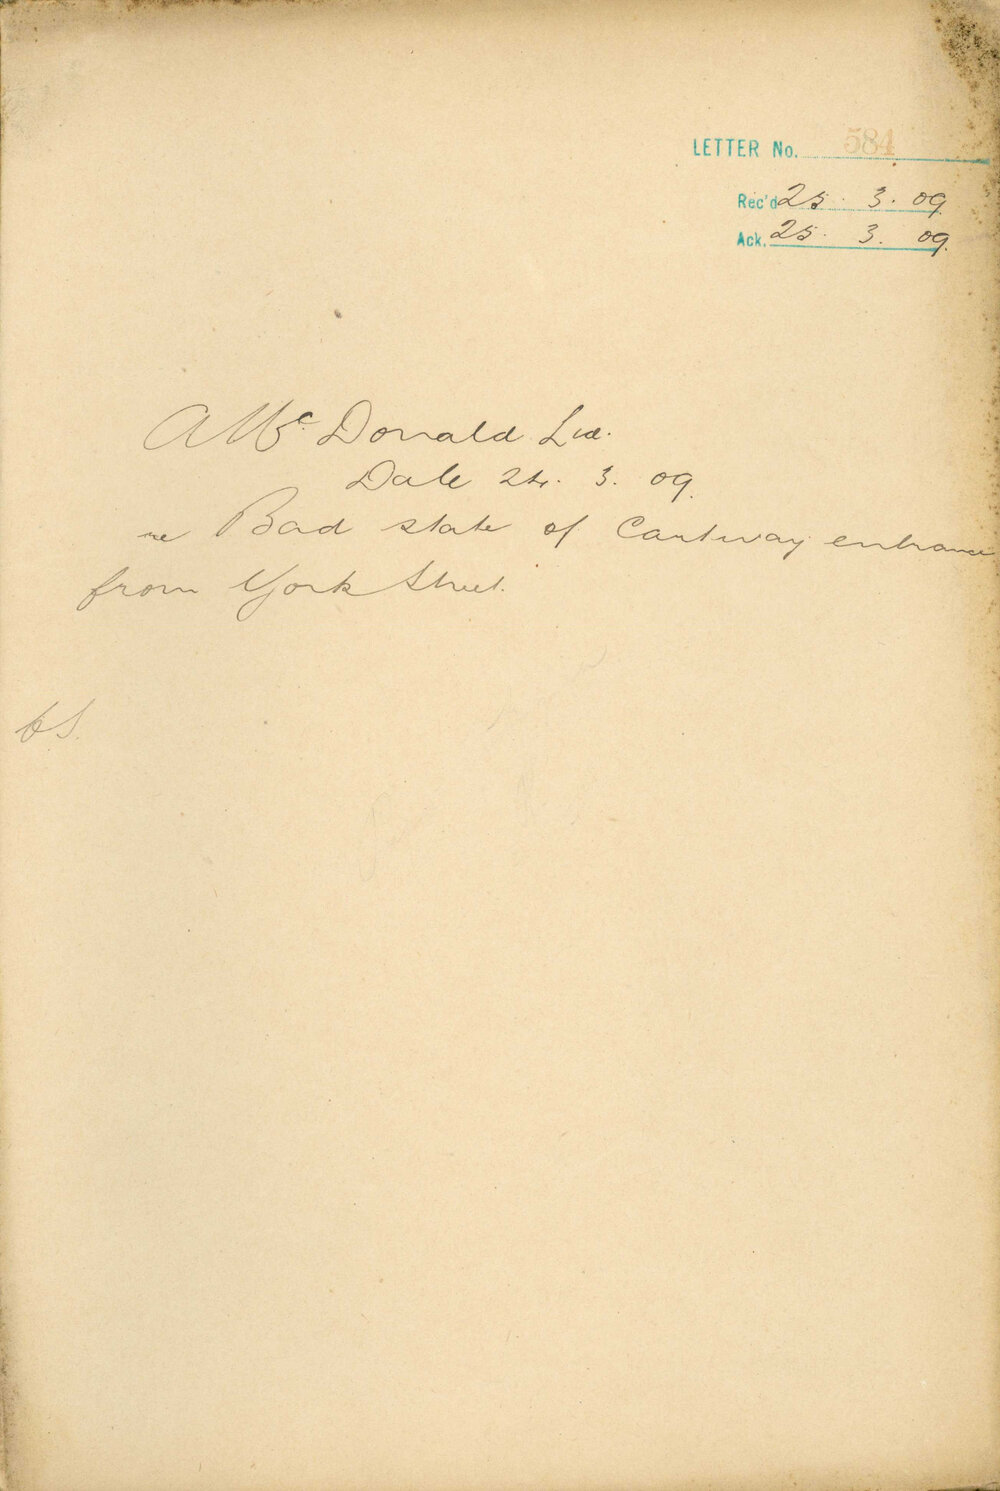 LETTER No. 584
Rec'd 25. 3. 09
Ack. 25. 3. 09.
A McDonald Ltd.
Date 24. 3. 09.
re Bad state of Cartway entrance
from York Street.